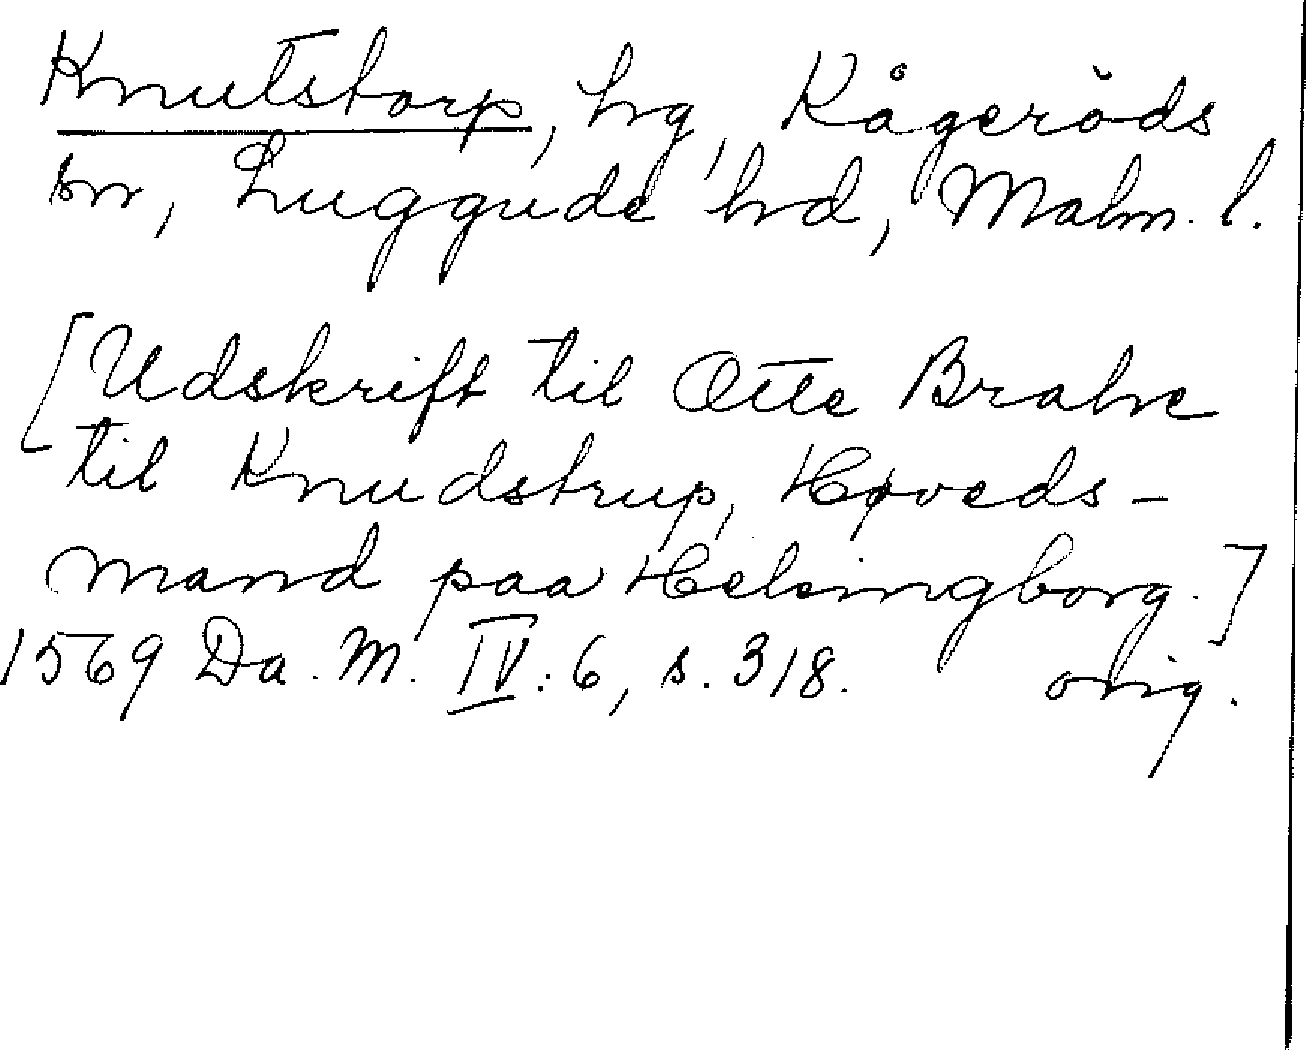 Knutstorp, hg, Kågeröds
sn, Luggude hd, Malm. l.
[Udskrift til Otte Brahe
til Knudstrup, Høveds-
mand paa Helsingborg.]
1569 Da. M. IV: 6, s. 318. orig.